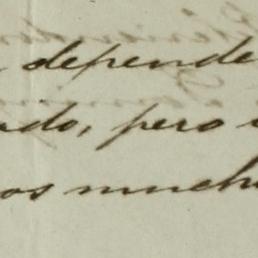 depende
ado, pero
os mucho